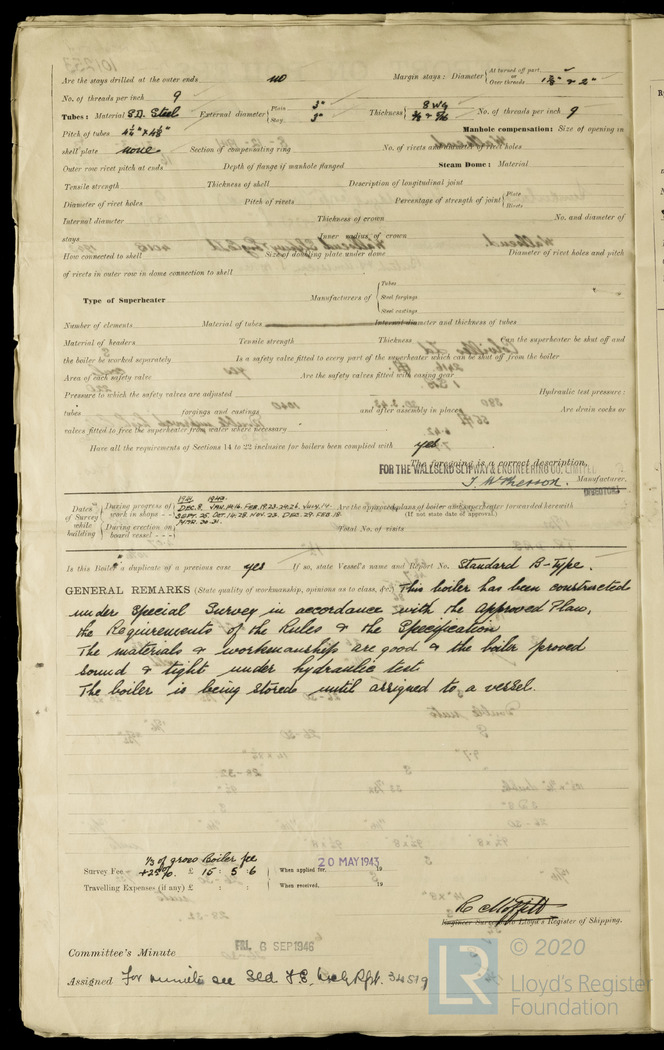 Are the stays drilled at the outer ends no Margin stays: Diameter { At turned off part or Over threads 1⅞" & 2"
No. of threads per inch 9
Tubes: Material S.D. Steel External diameter { Plain 3" Stay 3" Thickness { 8 WG No. of threads per inch 9
Pitch of tubes Manhole compensation: Size of opening in
shell plate none Section of compensating ring No. of rivets and diameter of rivet holes
Outer row rivet pitch at ends Depth of flange if manhole flanged Steam Dome: Material
Tensile strength Thickness of shell Description of longitudinal joint
Diameter of rivet holes Pitch of rivets Percentage of strength of joint { Plate Rivets
Internal diameter Thickness of crown No. and diameter of
stays Inner radius of crown
How connected to shell Size of doubling plate under dome Diameter of rivet holes and pitch
of rivets in outer row in dome connection to shell
Type of Superheater Manufacturers of { Tubes Steel forgings Steel castings
Number of elements Material of tubes Internal diameter and thickness of tubes
Material of headers Tensile strength Thickness Can the superheater be shut off and
the boiler be worked separately Is a safety valve fitted to every part of the superheater which can be shut off from the boiler
Area of each safety valve Are the safety valves fitted with easing gear
Pressure to which the safety valves are adjusted Hydraulic test pressure:
tubes forgings and castings and after assembly in place Are drain cocks or
valves fitted to free the superheater from water where necessary
Have all the requirements of Sections 14 to 22 inclusive for boilers been complied with yes
The foregoing is a correct description,
FOR THE WALLSEND SLIPWAY & ENGINEERING CO. LIMITED
Manufacturer.
DIRECTOR
Dates of Survey while building { During progress of work in shops - - 1941. DEC. 8. 1943. JAN. 14.16. FEB. 19.23.24.26. JULY. 14.
SEPT. 25. OCT. 14. 28. NOV. 23. DEC. 29. FEB. 18.
MAR. 30. 31.
During erection on board vessel - - -
Are the approved plans of boiler and superheater forwarded herewith
(If not state date of approval.)
Total No. of visits
Is this Boiler a duplicate of a previous case yes If so, state Vessel's name and Report No. Standard B-Type.
GENERAL REMARKS (State quality of workmanship, opinions as to class, &c.) This boiler has been constructed
under Special Survey in accordance with the approved Plan,
the Requirements of the Rules & the Specification
The materials & workmanships are good & the boiler proved
sound & tight under hydraulic test
The boiler is being stored until assigned to a vessel.
⅓ of gross Boiler fee
Survey Fee +25% £ 15 : 5 : 6 When applied for, 20 MAY 1943 19
Travelling Expenses (if any) £ : : When received, 19
R. Moffitt
Engineer Surveyor to Lloyd's Register of Shipping.
Committee's Minute FRI. 6 SEP 1946
Assigned For minute see Sld F.E. Rpt. 34519
LR © 2020
Lloyd's Register
Foundation